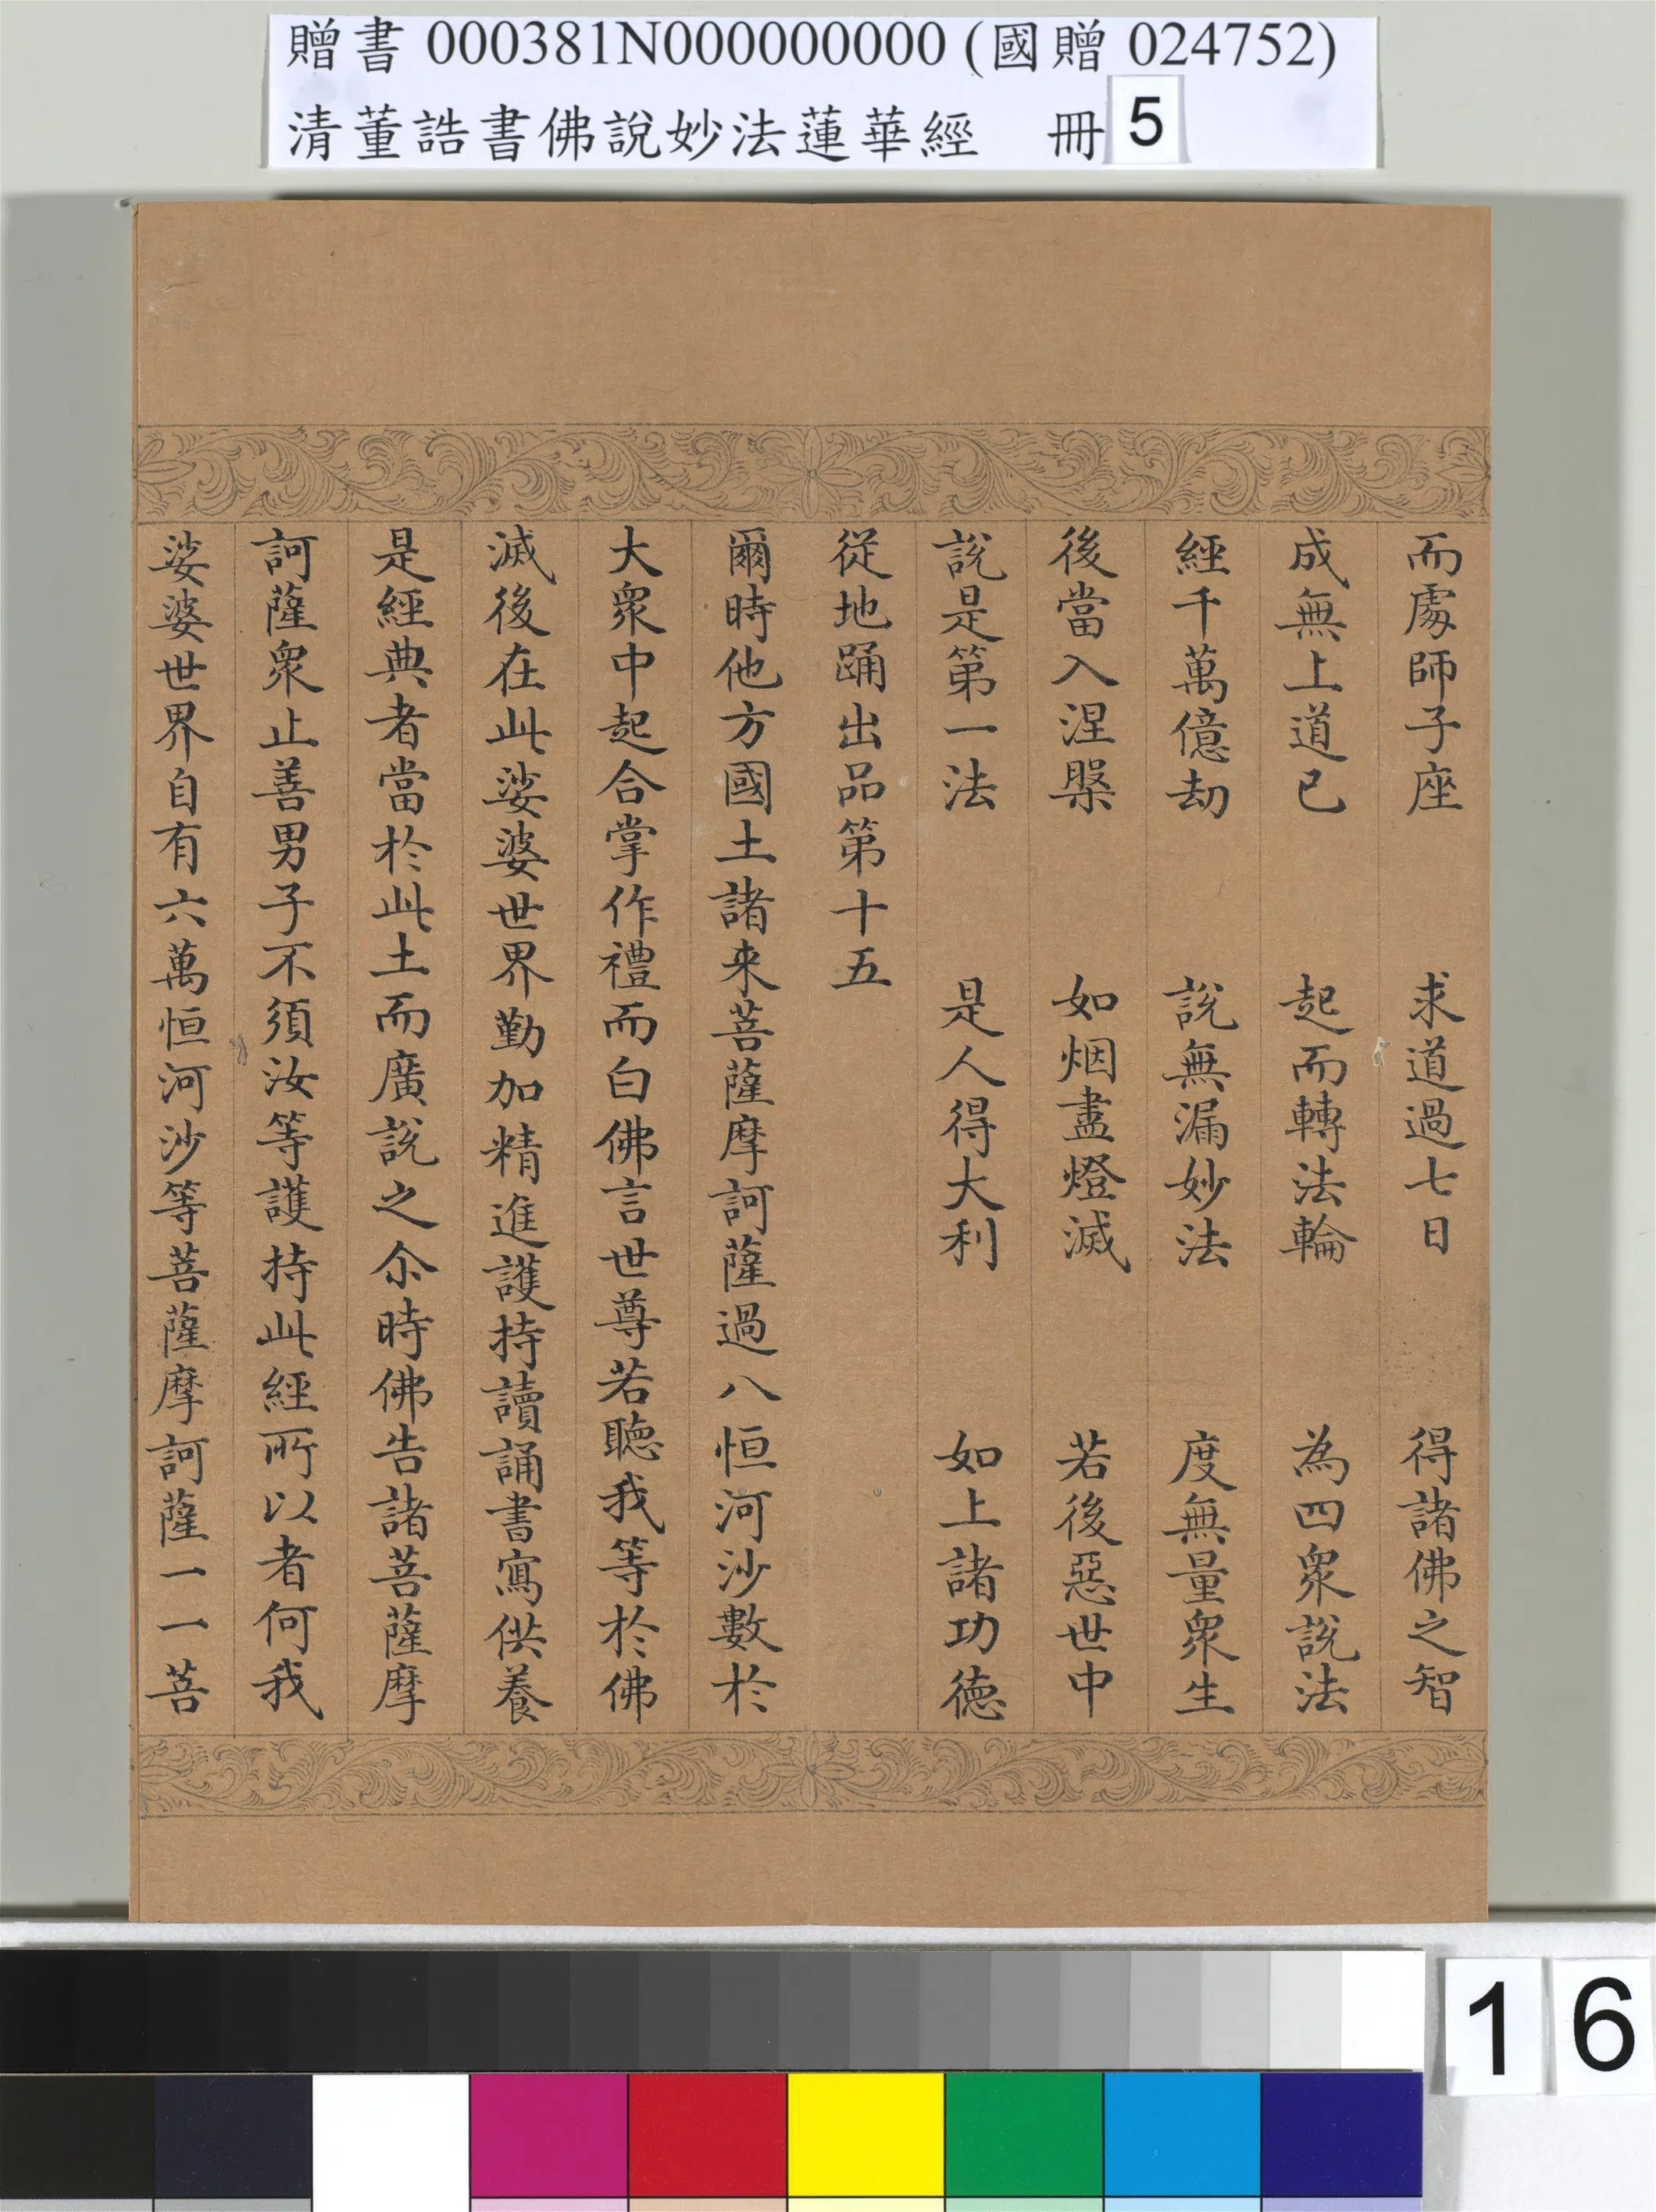 贈書 000381N000000000 (國贈 024752)
清董誥書佛說妙法蓮華經 冊 5
而處師子座 求道過七日 得諸佛之智
成無上道已 起而轉法輪 為四眾說法
經千萬億劫 說無漏妙法 度無量眾生
後當入涅槃 如烟盡燈滅 若後惡世中
說是第一法 是人得大利 如上諸功德
從地踊出品第十五
爾時他方國土諸來菩薩摩訶薩過八恒河沙數於
大眾中起合掌作禮而白佛言世尊若聽我等於佛
滅後在此娑婆世界勤加精進護持讀誦書寫供養
是經典者當於此土而廣說之尒時佛告諸菩薩摩
訶薩眾止善男子不須汝等護持此經所以者何我
娑婆世界自有六萬恒河沙等菩薩摩訶薩一一菩
16